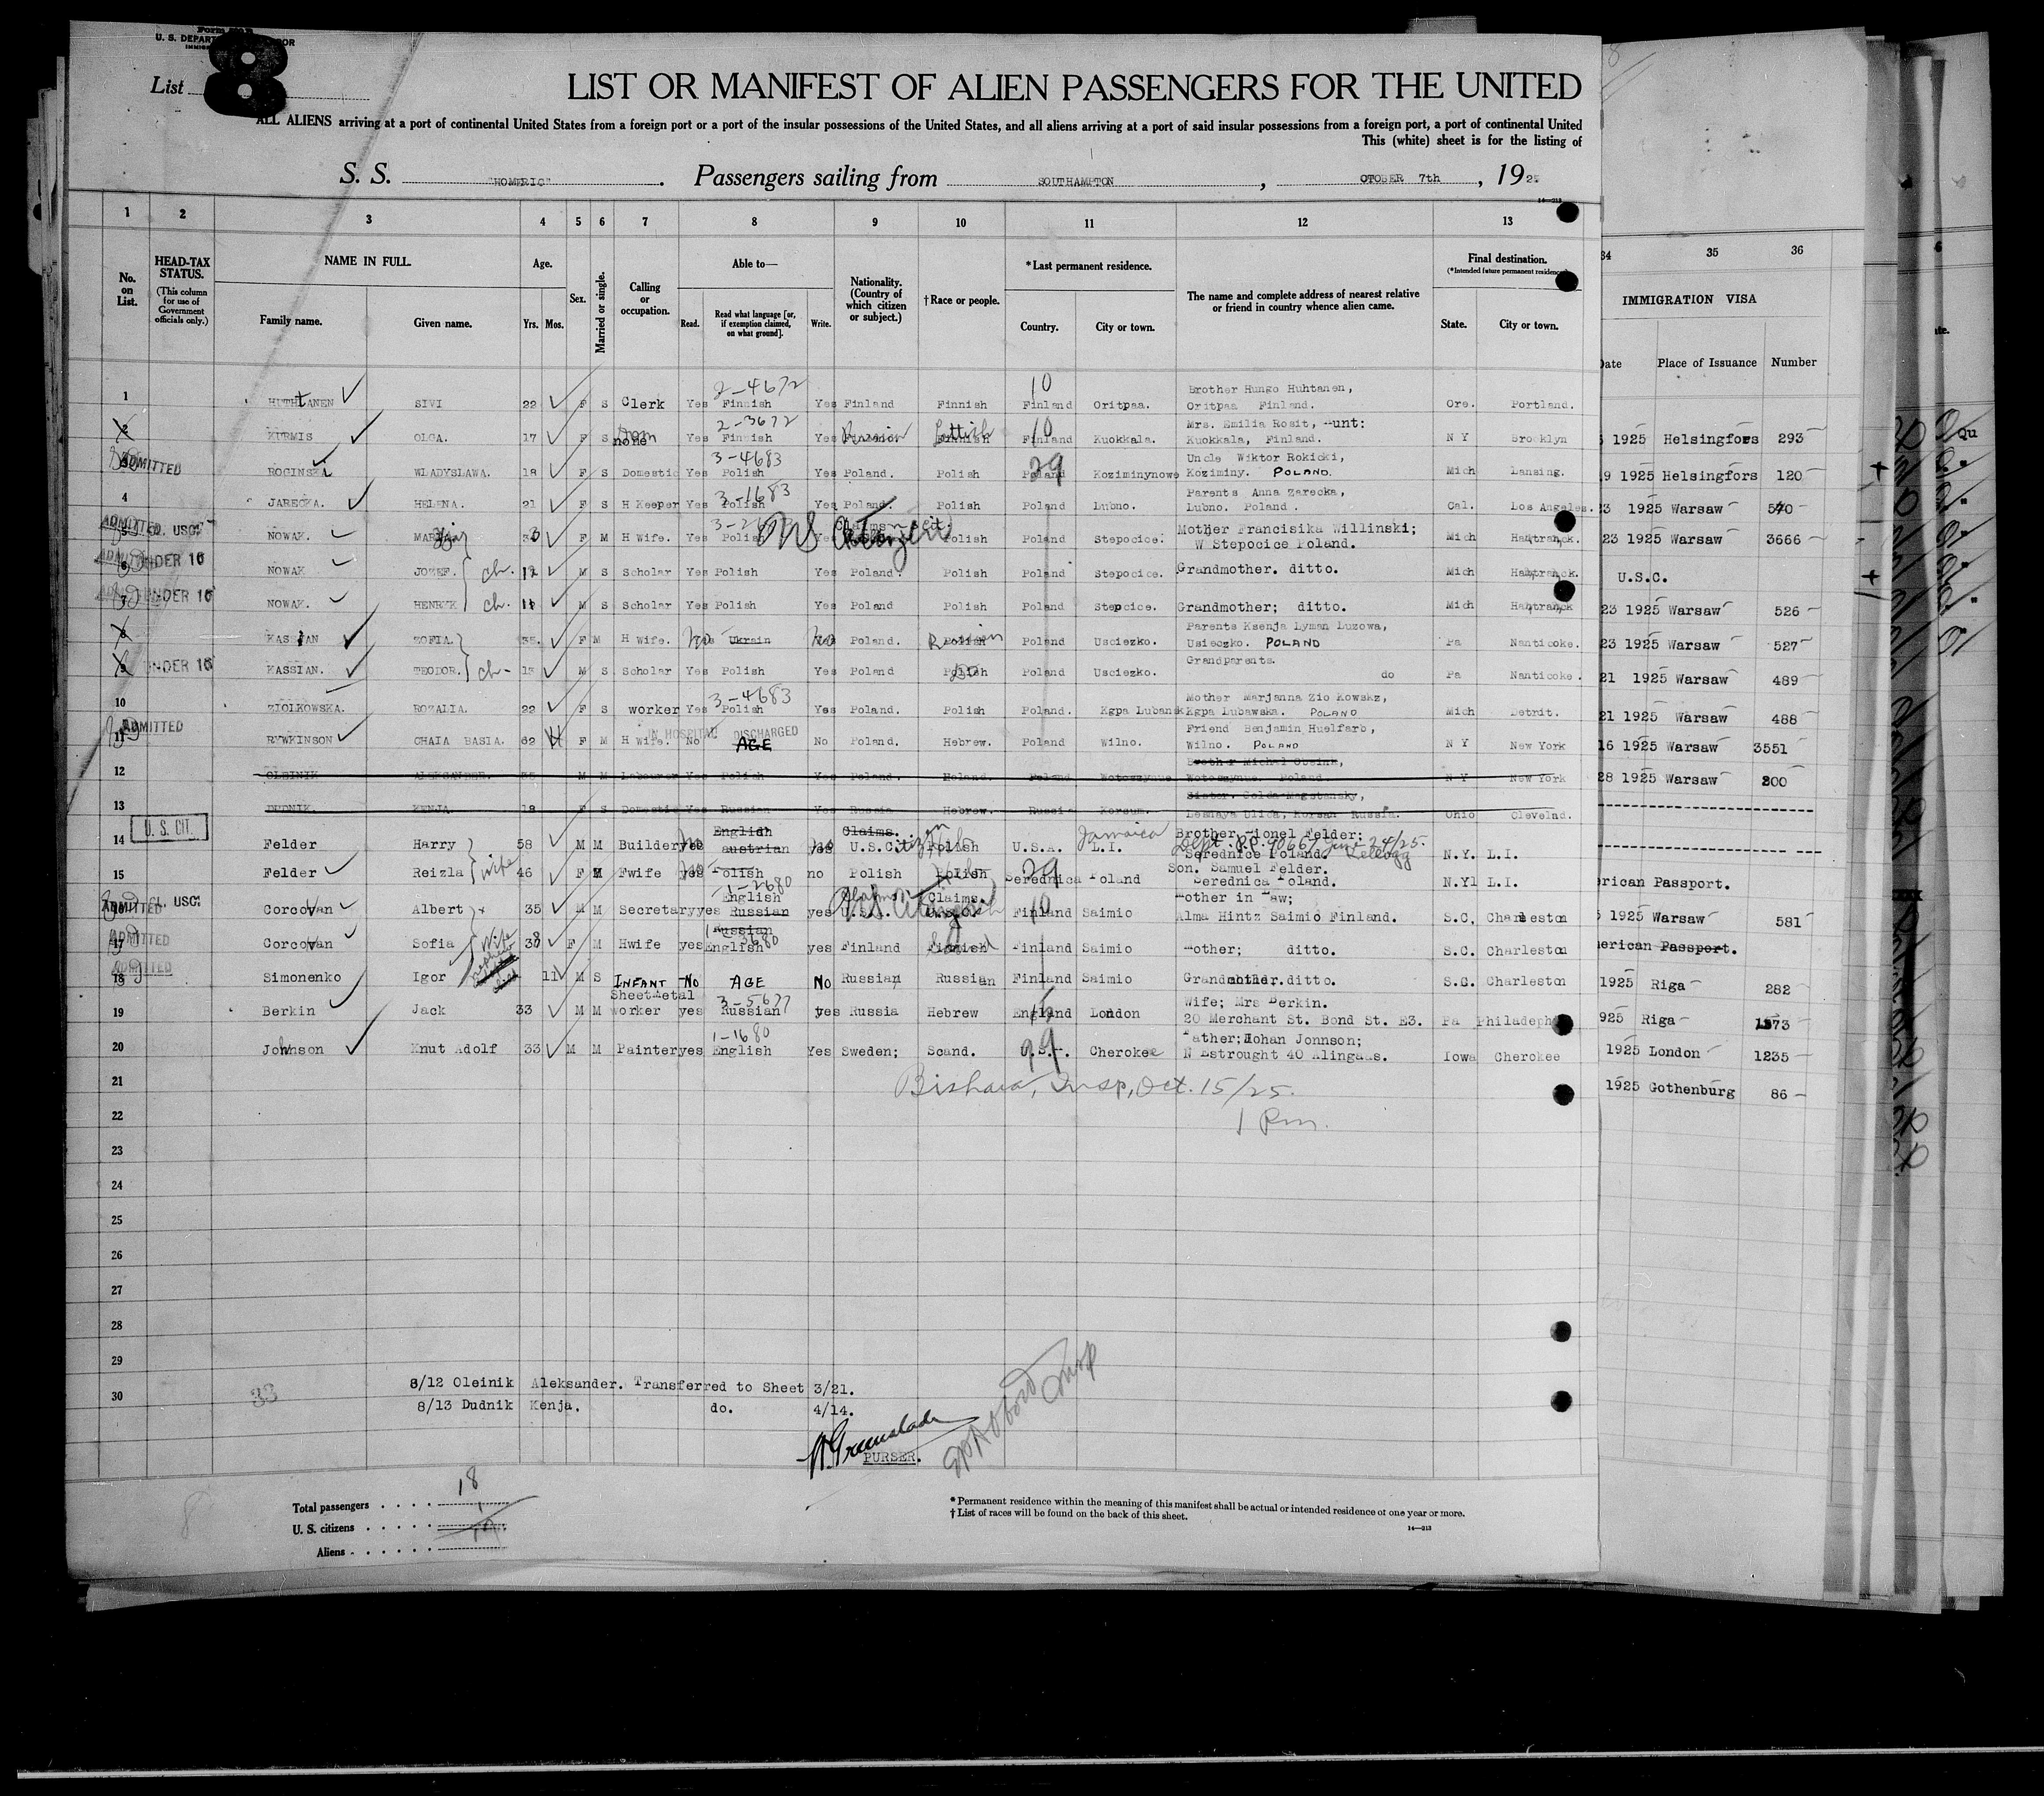 U. S. DEPART OR
List 8
LIST OR MANIFEST OF ALIEN PASSENGERS FOR THE UNITED
ALL ALIENS arriving at a port of continental United States from a foreign port or a port of the insular possessions of the United States, and all aliens arriving at a port of said insular possessions from a foreign port, a port of continental United
This (white) sheet is for the listing of
S. S. "HOMERIC". Passengers sailing from SOUTHAMPTON, OTOBER 7th, 192
1 2 3 4 5 6 7 8 9 10 11 12 13
No. on List. HEAD-TAX STATUS. (This column for use of Government officials only.) NAME IN FULL. Family name. Given name. Age. Yrs. Mos. Sex. Married or single. Calling or occupation. Able to— Read. Read what language [or, if exemption claimed, on what ground]. Write. Nationality. (Country of which citizen or subject.) † Race or people. *Last permanent residence. Country. City or town. The name and complete address of nearest relative or friend in country whence alien came. Final destination. (*Intended future permanent residence) State. City or town.
34 35 36
IMMIGRATION VISA
Date Place of Issuance Number
2-4672 10 Brother Hungo Huhtanen,
1 HUHTANEN SIVI 22 F S Clerk Yes Finnish Yes Finland Finnish Finland Oritpaa. Oritpaa Finland. Ore. Portland.
2-3672 10 Mrs. Emilia Rosit, Aunt:
2 KURMIS OLGA. 17 F S none Yes Finnish Yes Finland Finnish Finland Kuokkala. Kuokkala, Finland. N Y Brooklyn
1925 Helsingfors 293
3-4683 29 Uncle Wiktor Rokicki,
3 ADMITTED ROGINSKA WLADYSLAWA. 18 F S Domestic Yes Polish Yes Poland. Polish Poland Koziminynowe Koziminy. POLAND. Mich Lansing.
9 1925 Helsingfors 120
3-1683 Parents Anna Zarecka,
4 JARECKA. HELENA. 21 F S H Keeper Yes Polish Yes Poland. Polish Poland Lubno. Lubno. Poland. Cal. Los Angeles.
23 1925 Warsaw 540
ADMITTED. USC. Claims cit. US Citizen Mother Francisika Willinski;
5 NOWAK. F M H Wife. Yes Polish Yes Polish Poland Stepocice. W Stepocice Poland. Mich Hamtranck.
23 1925 Warsaw 3666
6 UNDER 16 NOWAK JOZEF. ch. 12 M S Scholar Yes Polish Yes Poland. Polish Poland Stepocice. Grandmother. ditto. Mich Hamtranck.
U.S.C.
7 UNDER 16 NOWAK. HENRYK ch. 11 M S Scholar Yes Polish Yes Poland Polish Poland Stepcice. Grandmother; ditto. Mich Hamtranck
23 1925 Warsaw 526
Parents Ksenja Lyman Luzowa,
8 KASSIAN ZOFIA. 35. F M H Wife. No Ukrain No Poland. Polish Poland Usciezko. Usieczko. POLAND Pa Nanticoke.
23 1925 Warsaw 527
Grandparents.
9 UNDER 16 KASSIAN. TEODOR. ch- M S Scholar Yes Polish Yes Poland Polish Poland Usciezko. do Pa Nanticoke.
21 1925 Warsaw 489
3-4683 Mother Marjanna Zio Kowskz,
10 ZIOLKOWSKA. ROZALIA. 22 F S worker Yes Polish Yes Poland. Polish Poland. Kgpa Lubansk Kgpa Lubawska. POLAND Mich Detrit.
21 1925 Warsaw 488
IN HOSPITAL DISCHARGED Friend Benjamin Huelfarb,
11 ADMITTED RYWKINSON CHAIA BASIA. 62 F M H Wife. No AGE No Poland. Hebrew. Poland Wilno. Wilno. POLAND N Y New York
16 1925 Warsaw 3551
12 OLEINIK ALEKSANDER. M M Labourer Yes Polish Yes Poland. Poland. Poland N Y New York
28 1925 Warsaw 300
13 DUDNIK. KENJA 18 F S Domestic Yes Russian Yes Russia Hebrew. Russia Korsum. Lesnaya Ulica, Korsan Russia. Ohio Clevelnd.
U. S. CIT. English Claims. Jamaica Brother Lionel Felder:
14 Felder Harry 58 M M Builder yes austrian yes U.S.Citizen Polish U.S.A. L.I. Serednice Poland. N.Y. L.I.
Dept. P.P. 90667 June 24/25. Kellogg
Son. Samuel Felder.
15 Felder Reizla wife 46 F M Fwife yes Polish no Polish Polish Serednica Poland Serednica Poland. N.Yl L.I.
erican Passport.
1-2680 English Claims. Mother in Law;
16 ADMITTED CL. USC. Corcovan Albert 35 M M Secretary yes Russian yes U.S. Citizen Finland Saimio Alma Hintz Saimio Finland. S.C, Charleston
1925 Warsaw 581
Russian
17 ADMITTED Corcovan Sofia wife F M Hwife yes English yes Finland Finnish Finland Saimio Mother; ditto. S.C. Charleston
erican Passport.
18 ADMITTED Simonenko Igor 11 M S INFANT No AGE No Russian Russian Finland Saimio Grandmother. ditto. S.C. Charleston
1925 Riga 282
Sheet Metal 3-5677 Wife; Mrs Berkin.
19 Berkin Jack 33 M M worker yes Russian yes Russia Hebrew England London 20 Merchant St. Bond St. E3. Pa Philadeph
925 Riga 1373
1-1680 99 Father; Johan Jonnson;
20 Johnson Knut Adolf 33 M M Painter yes English Yes Sweden; Scand. Cherokee N Estrought 40 Alingsas. Iowa Cherokee
1925 London 1235
21 Bishara, Insp, Oct. 15/25.
1925 Gothenburg 86
22 1 Pm.
23
24
25
26
27
28
29
8/12 Oleinik Aleksander. Transferred to Sheet 3/21.
30 33
8/13 Dudnik Kenja. do. 4/14.
PURSER.
Total passengers . . . . 18
U. S. citizens . . . . .
Aliens . . . . . .
* Permanent residence within the meaning of this manifest shall be actual or intended residence of one year or more.
† List of races will be found on the back of this sheet.
14—213